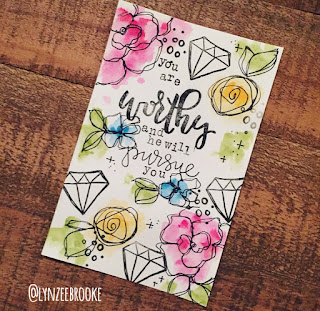 you
are
worthy
and
he will
pursue
you
@LYNZEEBROOKE